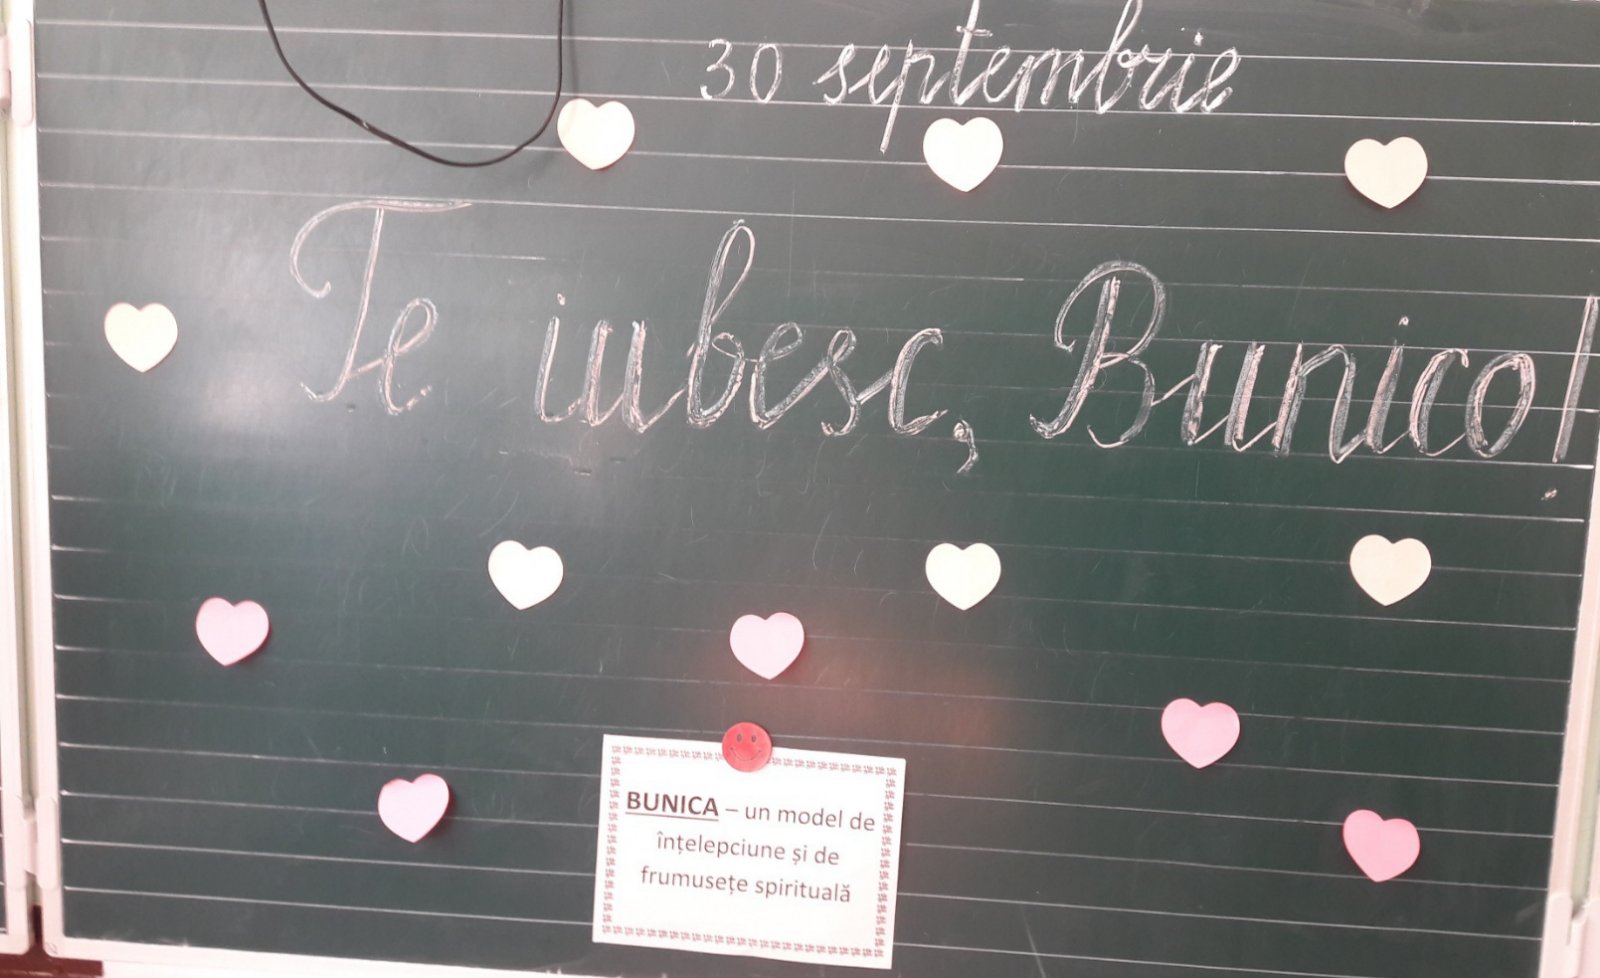 30 septembrie
Te iubesc, Bunico!
BUNICA – un model de
înțelepciune și de
frumusețe spirituală